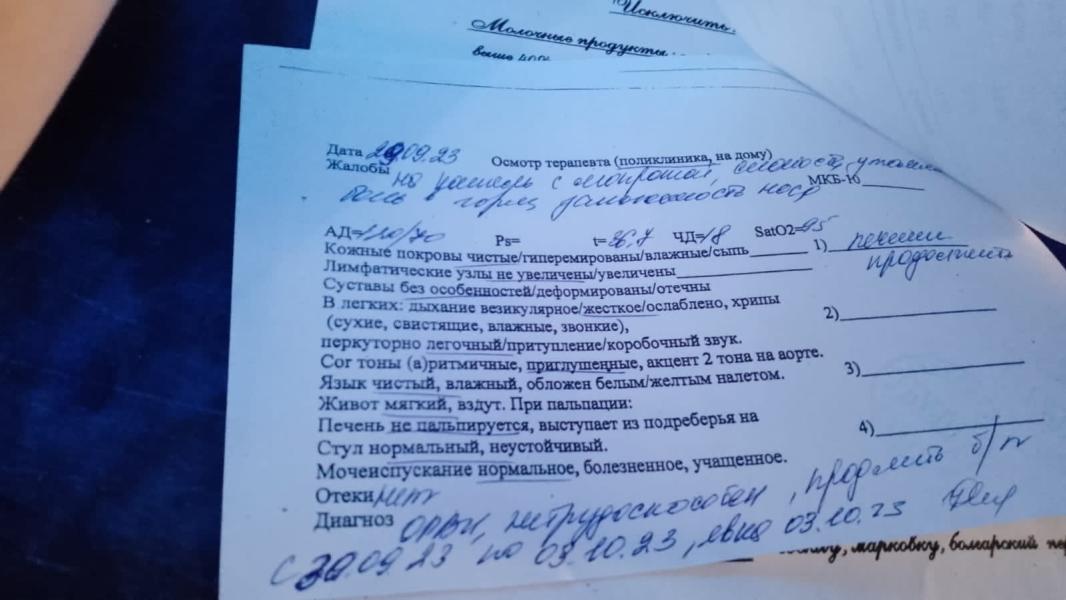 Исключить:
Молочные продукты
выше 40%
Дата 29.09.23 Осмотр терапевта (поликлиника, на дому)
Жалобы на кашель с мокротой, слабость,
МКБ-10
боль в горле заложенность носа
АД=120/70 Ps= t=36,7 ЧД=18 SatO2=95
Кожные покровы чистые/гиперемированы/влажные/сыпь 1) лечение
Лимфатические узлы не увеличены/увеличены продолжить
Суставы без особенностей/деформированы/отечны
В легких: дыхание везикулярное/жесткое/ослаблено, хрипы 2)
(сухие, свистящие, влажные, звонкие),
перкуторно легочный/притупление/коробочный звук.
Cor тоны (а)ритмичные, приглушенные, акцент 2 тона на аорте. 3)
Язык чистый, влажный, обложен белым/желтым налетом.
Живот мягкий, вздут. При пальпации:
Печень не пальпируется, выступает из подреберья на 4)
Стул нормальный, неустойчивый.
Мочеиспускание нормальное, болезненное, учащенное.
Отеки нет
Диагноз ОРВИ, нетрудоспособен, продлить б/л
с 30.09.23 по 03.10.23, явка 03.10.23
марковку, болгарский пе